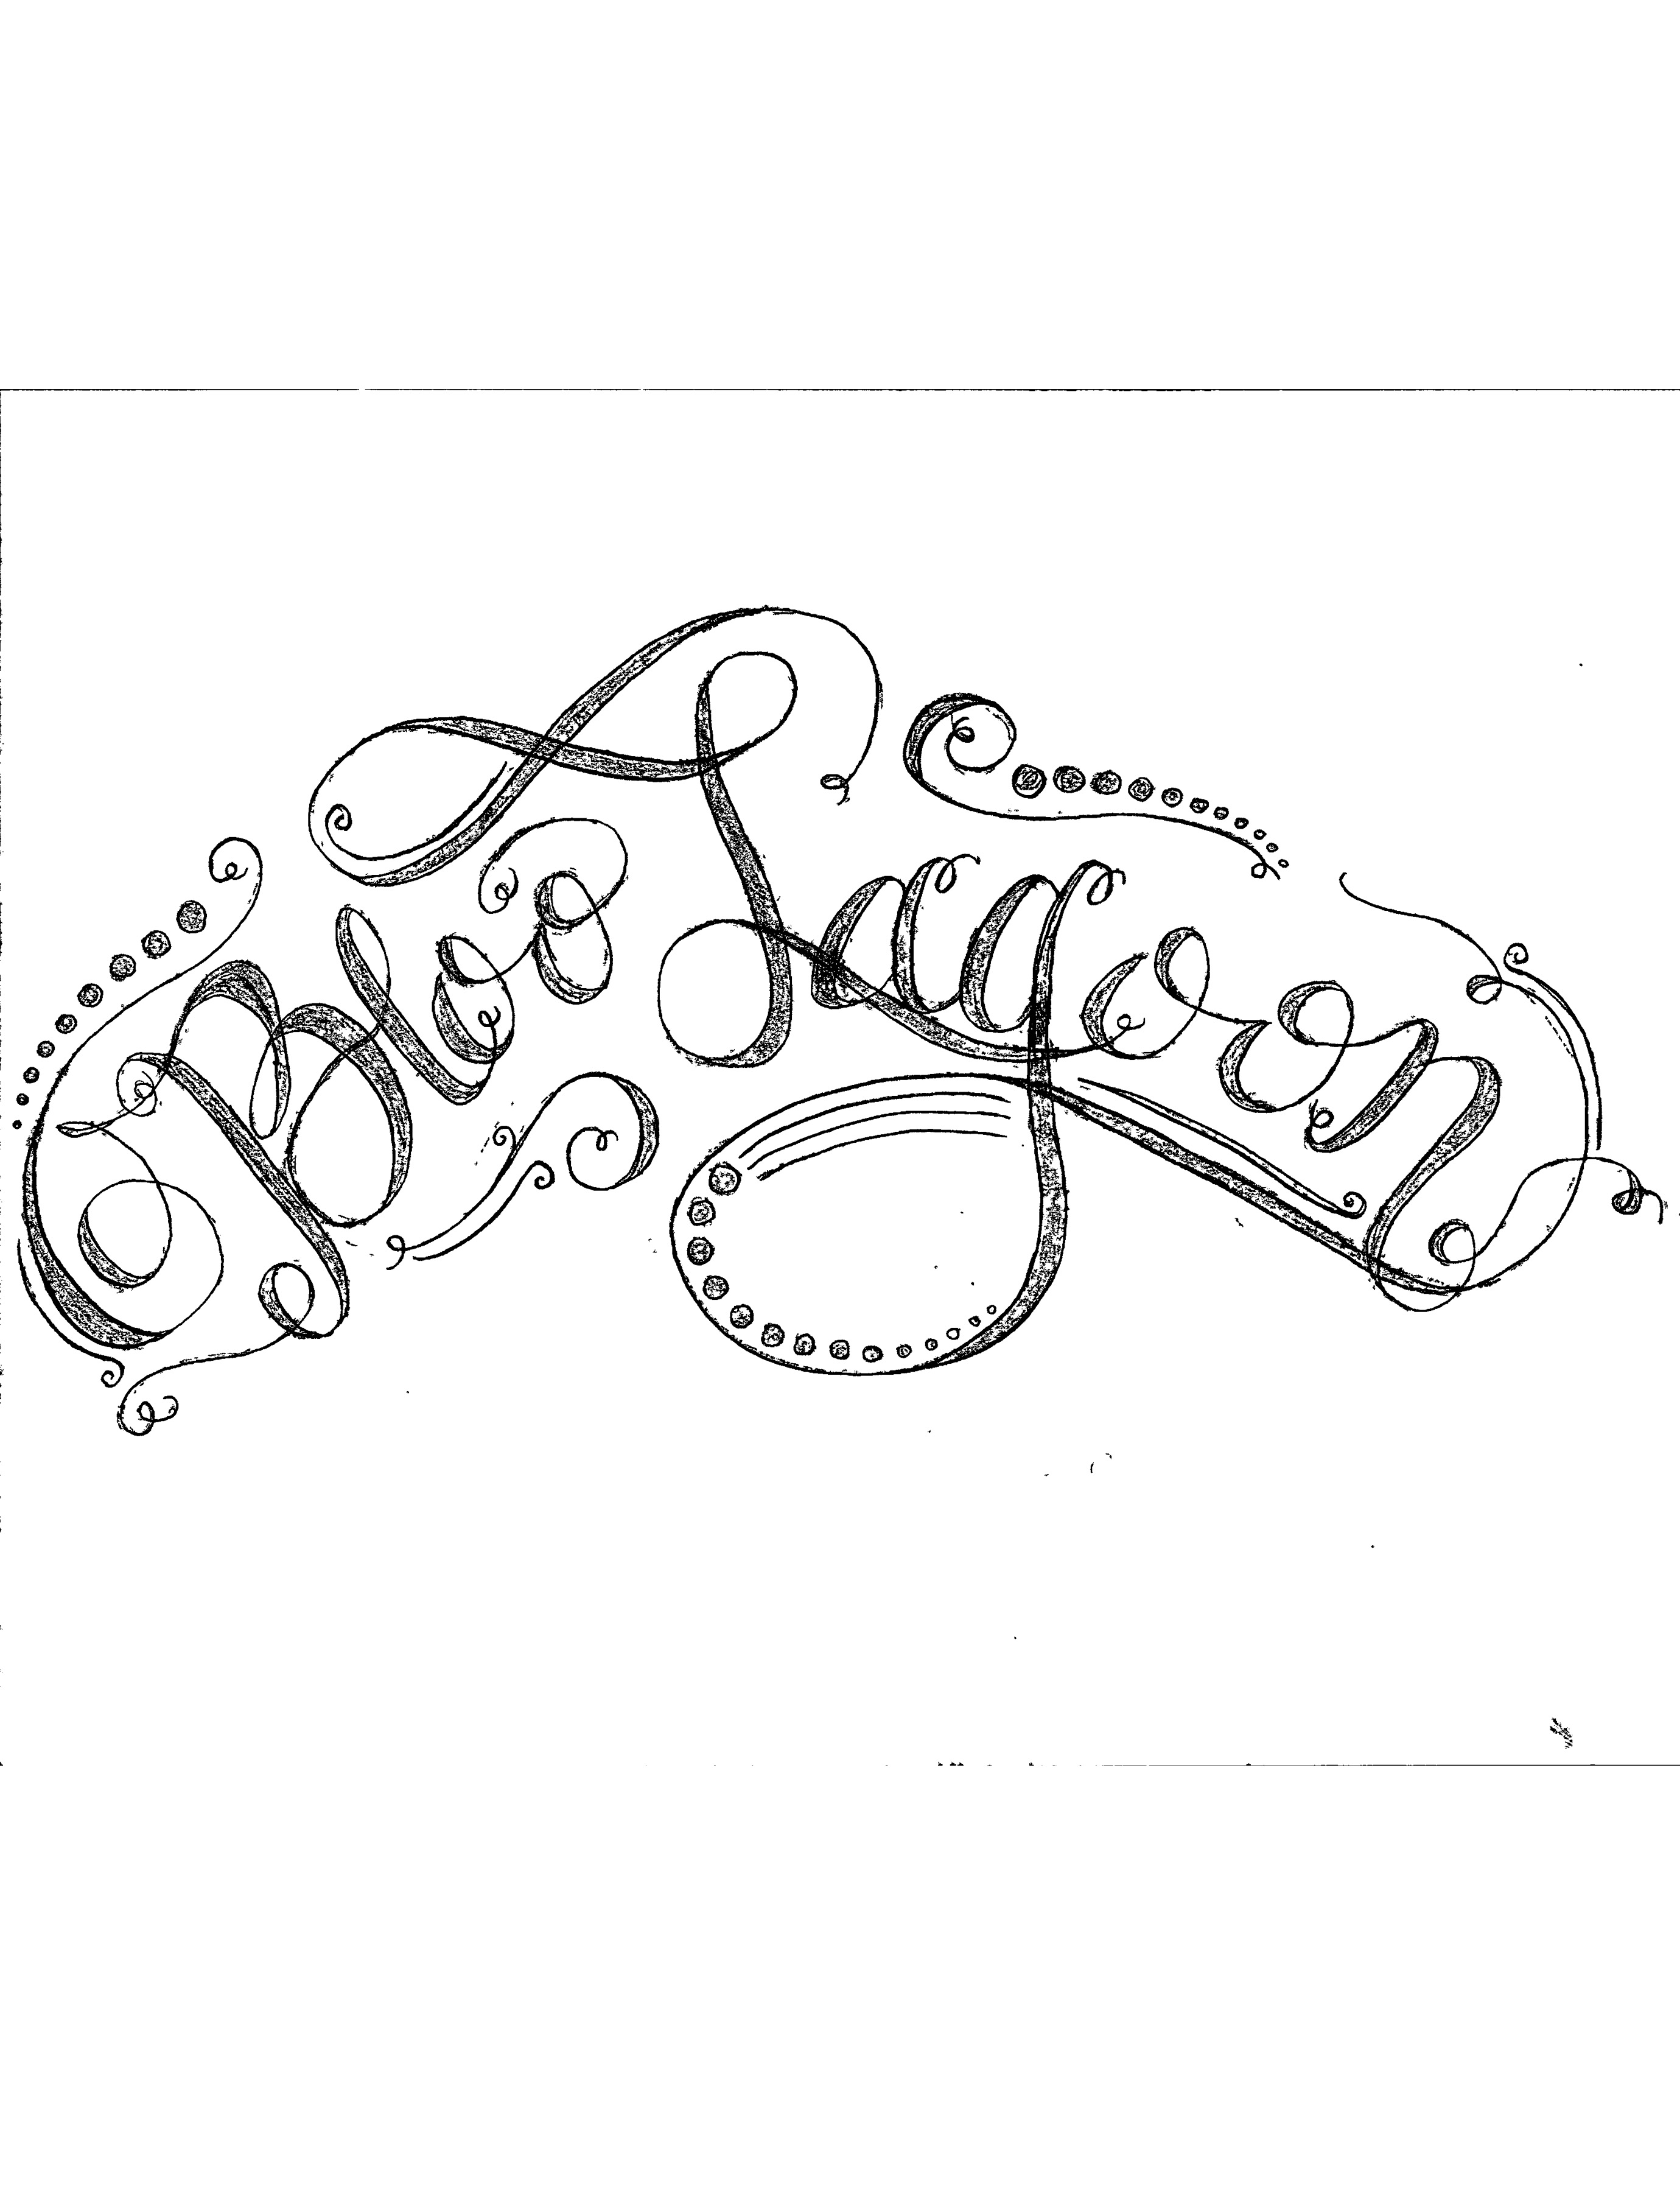 Bloo Lagoon